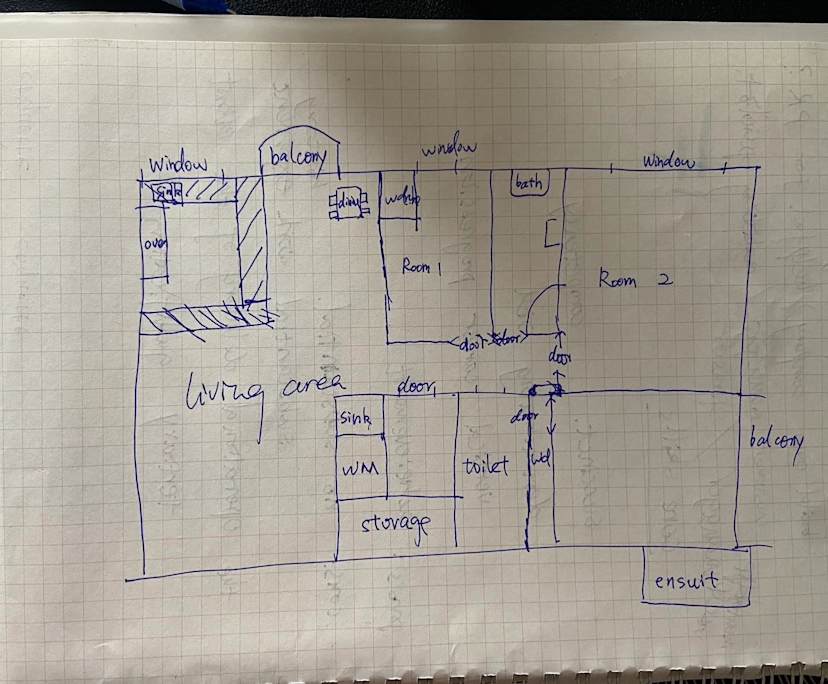 Window
balcony
window
Window
Sink
wdrb
bath
oven
Room 1
Room 2
door
door
door
living area
door
door
sink
WM
toilet
wd
balcony
storage
ensuit